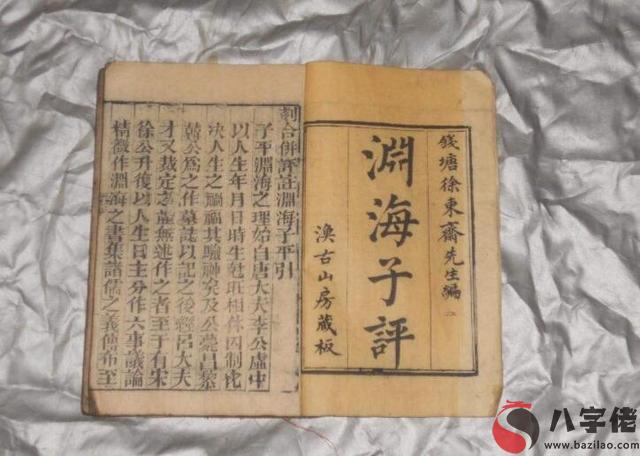 錢塘徐東齋先生編
淵海子評
渙古山房藏板
刻合併評註淵海子平引
子平淵海之理始自唐大夫李公虛中
以人生年月日時生尅旺相休囚制化
決人生之禍福其驗神矣及公薨昌黎
韓公為之作墓誌以記之後經呂大夫
才又裁定之並無述作之者至于有宋
徐公升復以人生日主分作六事議論
精微作淵海之書集諸儒之義傳布至
八字佬
www.bazilao.com